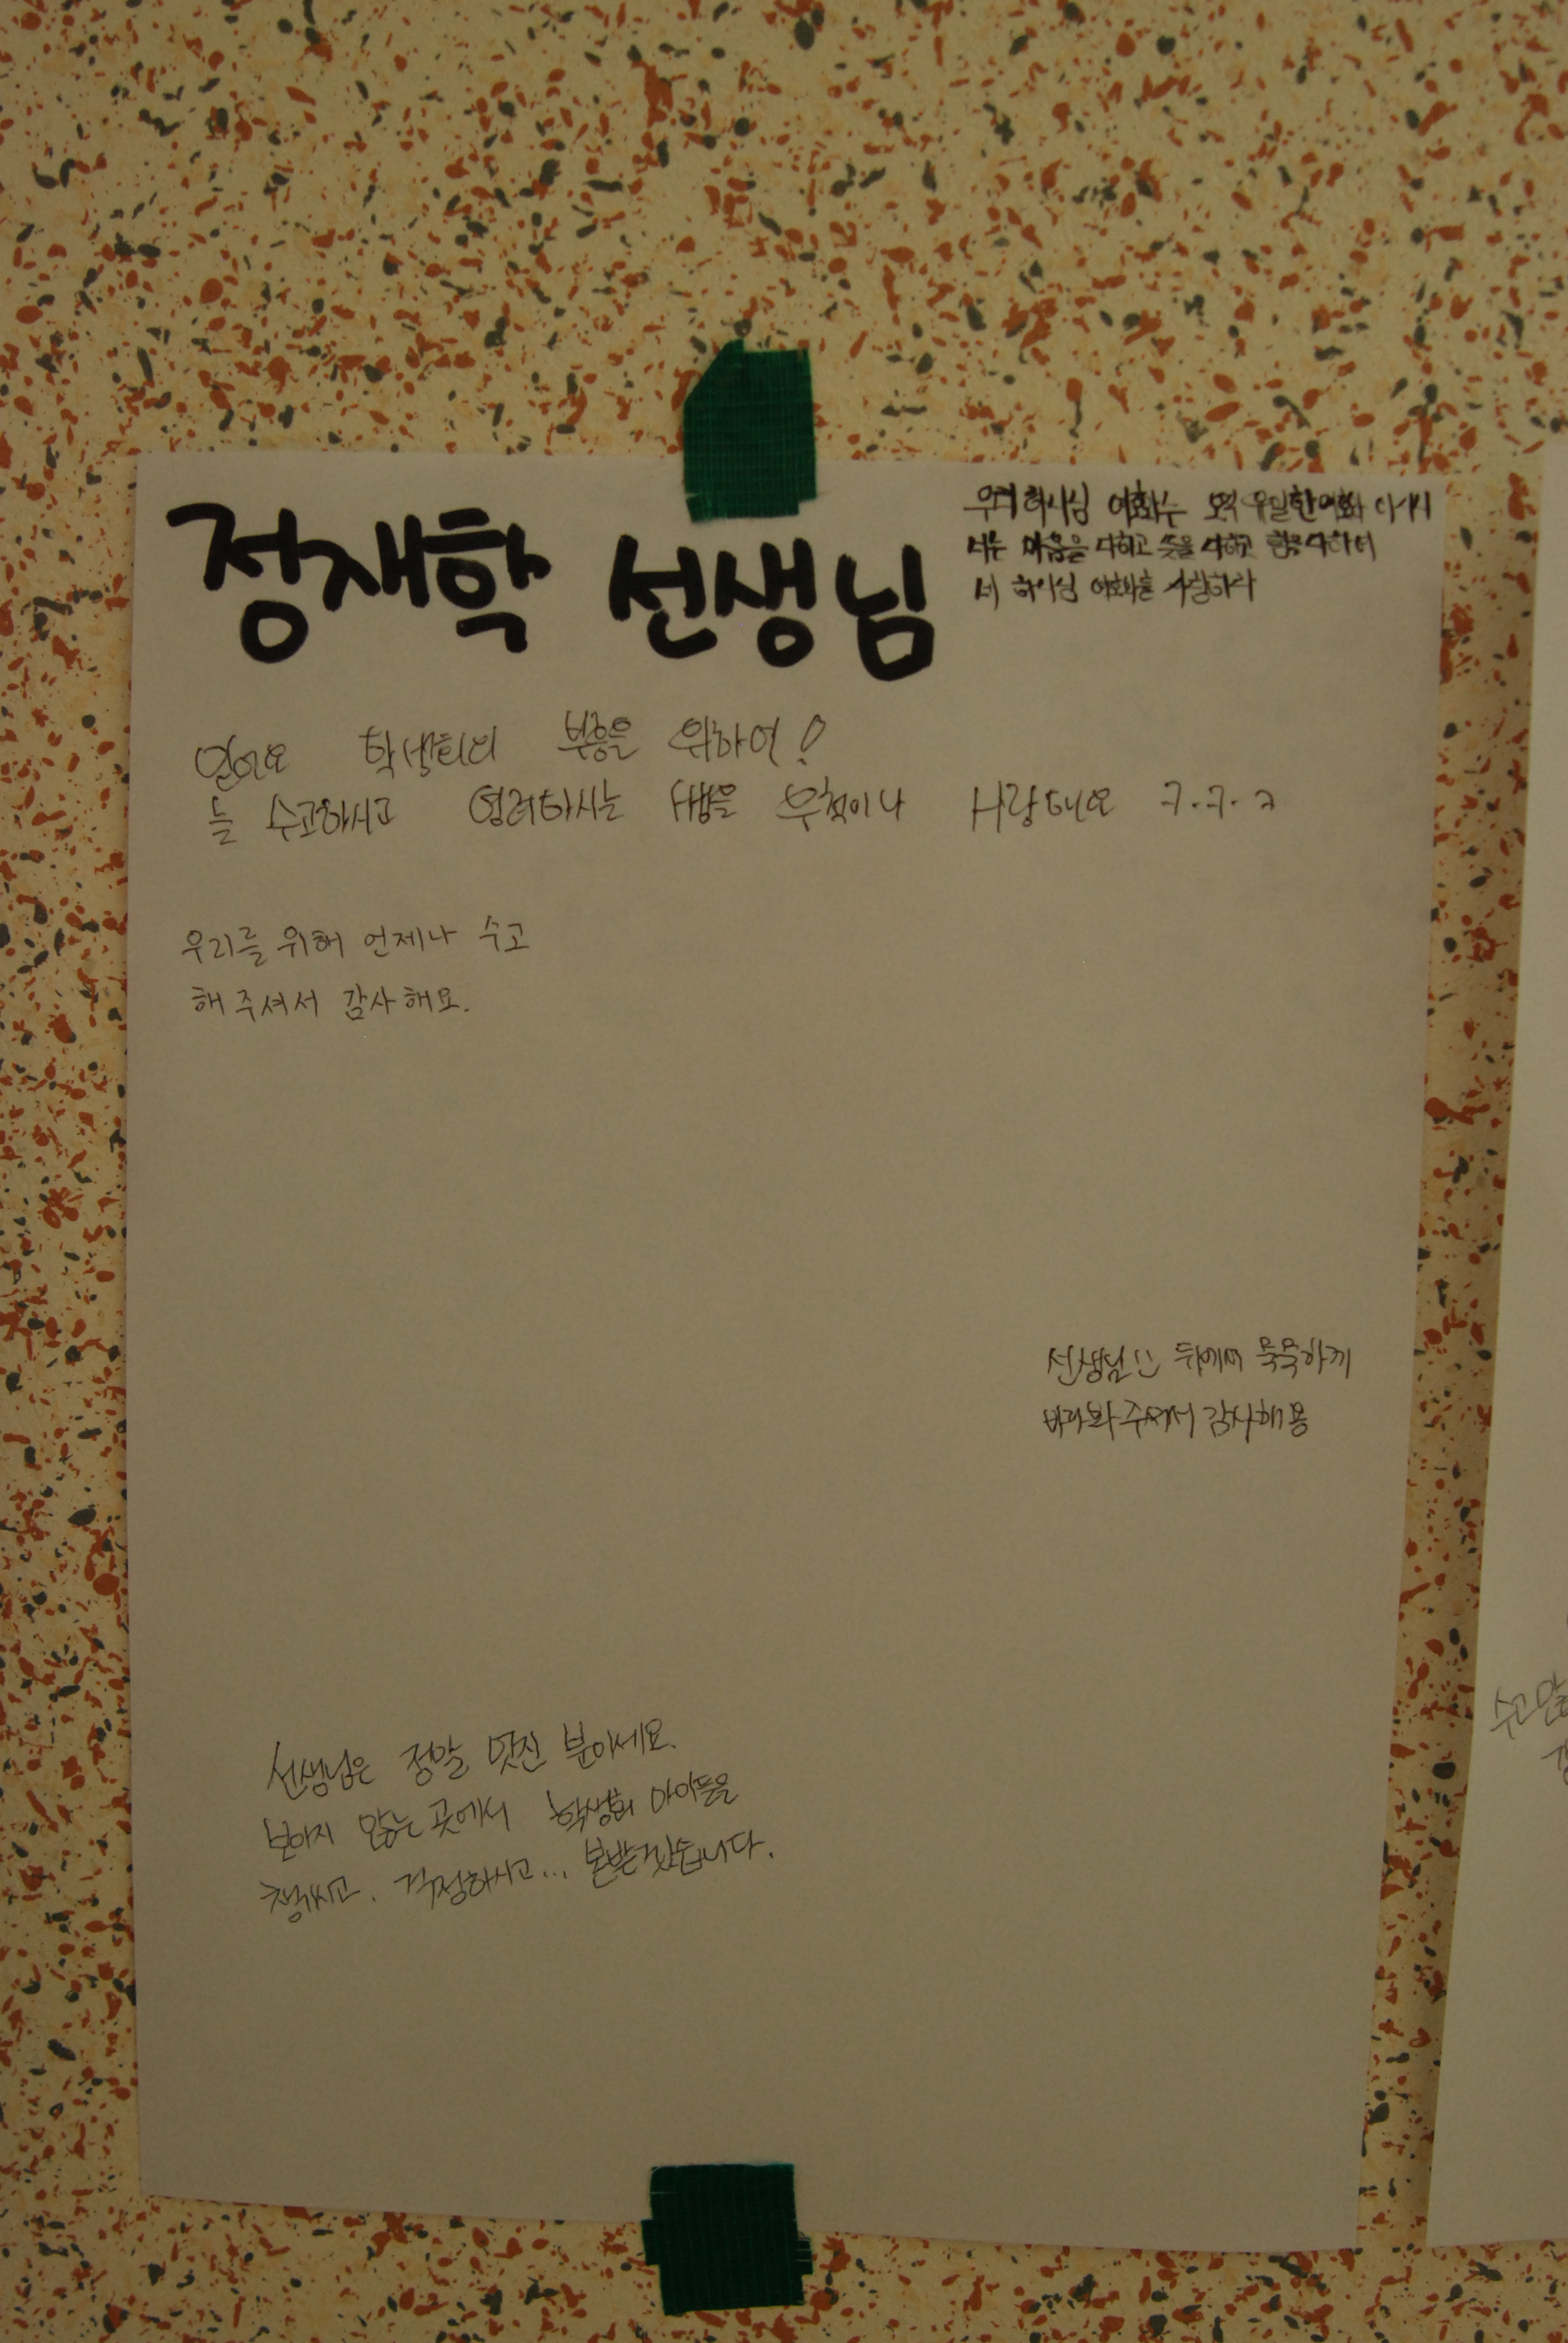 정재학 선생님
우리 하나님 여호와는 오직 유일한 여호와 이시니
너는 마음을 다하고 뜻을 다하고 힘을 다하여
네 하나님 여호와를 사랑하라
학생회의 부흥을 위하여!
늘 수고하시고 염려하시는 쌤을 무척이나 사랑해요 ㅋ.ㅋ.ㅋ
우리를 위해 언제나 수고
해 주셔서 감사해요.
선생님!! 뒤에서 묵묵하게
바라봐 주셔서 감사해용
선생님은 정말 멋진 분이세요.
보이지 않는 곳에서 학생회 아이들을
챙기시고. 걱정하시고... 본받겠습니다.
수고